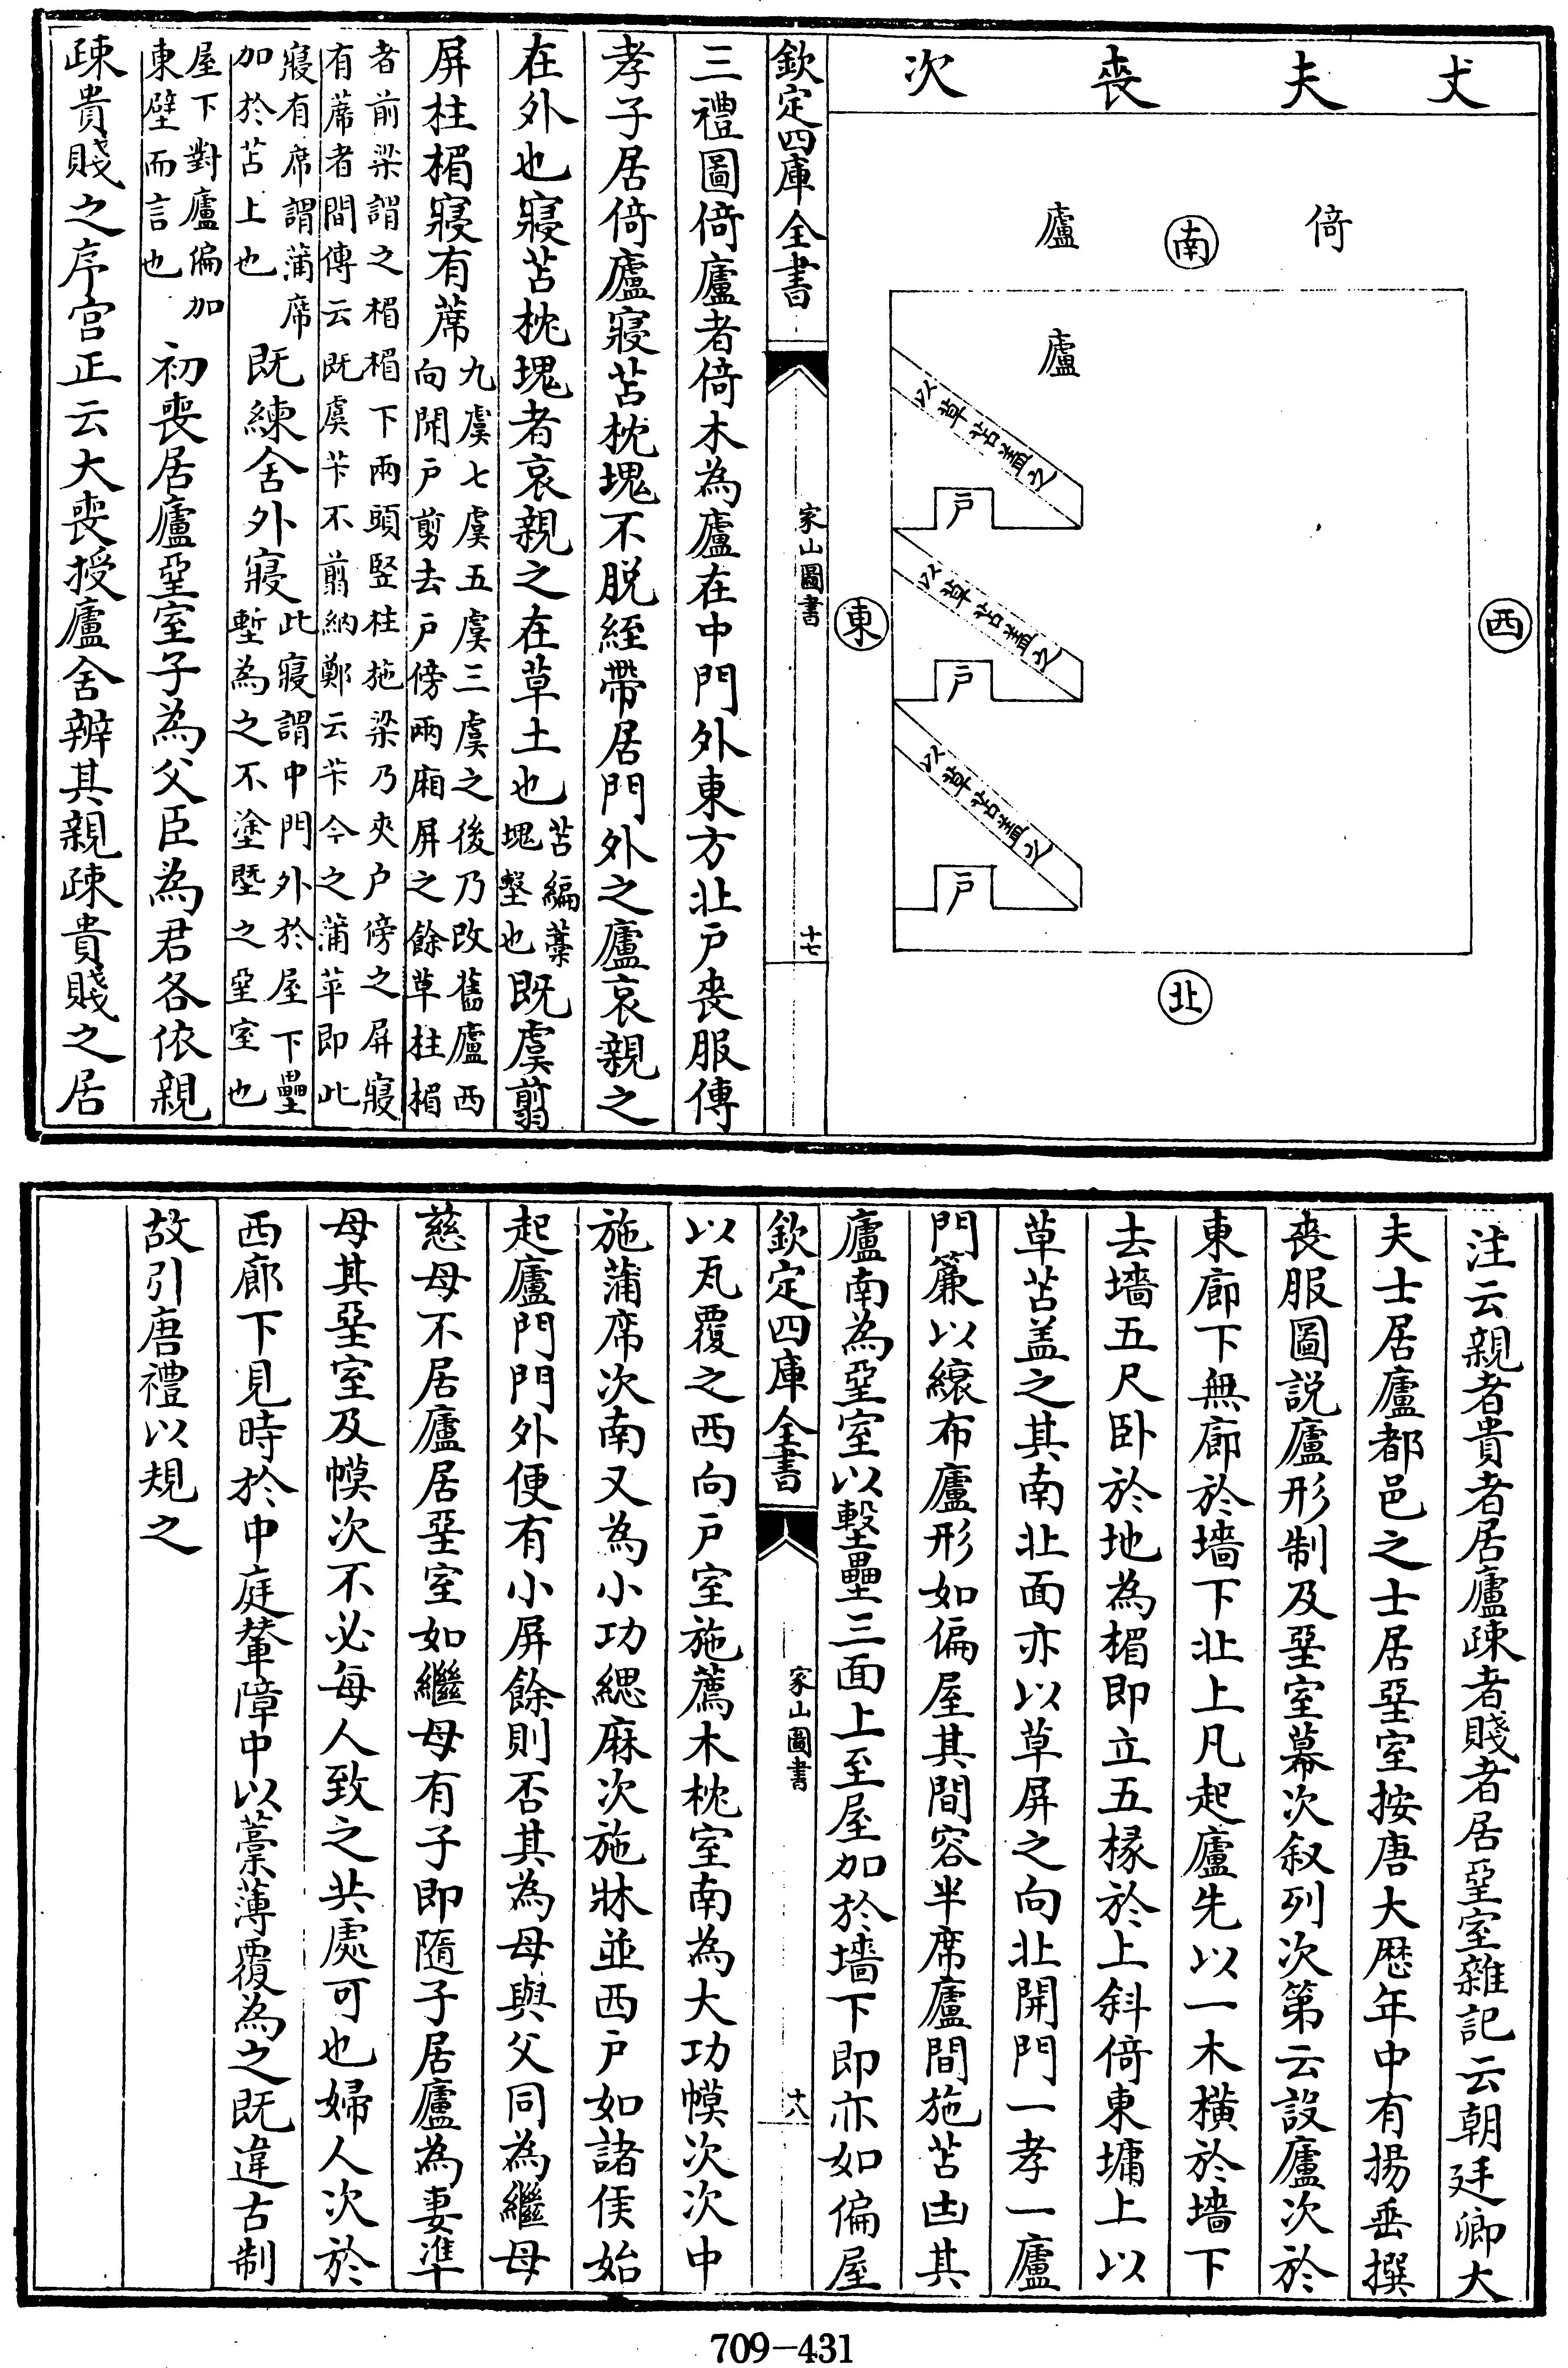 丈夫喪次
倚
南
廬
廬
以草苫盖之
戶
以草苫盖之
戶
以草苫盖之
戶
東
西
北
欽定四庫全書
家山圖書
十七
三禮圖倚廬者倚木為廬在中門外東方北戶喪服傳
孝子居倚廬寢苫枕塊不脱絰帶居門外之廬哀親之
在外也寢苫枕塊者哀親之在草土也苫編藁塊墼也既虞翦
屏柱楣寢有蓆九虞七虞五虞三虞之後乃改舊廬西向開戶剪去戶傍兩廂屏之餘草柱楣
者前梁謂之楣楣下兩頭竪柱施梁乃夾户傍之屏寢有蓆者間傳云既虞芐不翦納鄭云芐今之蒲苹即此
寢有席謂蒲席加於苫上也既練舍外寢此寢謂中門外於屋下壘墼為之不塗塈之堊室也
屋下對廬偏加東壁而言也初喪居廬堊室子為父臣為君各依親
疎貴賤之序宫正云大喪授廬舍辨其親疎貴賤之居
注云親者貴者居廬疎者賤者居堊室雜記云朝廷卿大
夫士居廬都邑之士居堊室按唐大厯年中有揚垂撰
喪服圖説廬形制及堊室幕次叙列次第云設廬次於
東廊下無廊於墻下北上凡起廬先以一木横於墻下
去墻五尺卧於地為楣即立五椽於上斜倚東墉上以
草苫盖之其南北面亦以草屏之向北開門一孝一廬
門簾以縗布廬形如偏屋其間容半席廬間施苫凷其
廬南為堊室以墼壘三面上至屋加於墻下即亦如偏屋
欽定四庫全書
家山圖書
十八
以瓦覆之西向戶室施薦木枕室南為大功幙次次中
施蒲席次南又為小功緦麻次施牀並西户如諸侯始
起廬門門外便有小屏餘則否其為母與父同為繼母
慈母不居廬居堊室如繼母有子即隨子居廬為妻準
母其堊室及幙次不必每人致之共處可也婦人次於
西廊下見時於中庭輦障中以藁薄覆為之既違古制
故引唐禮以規之
709-431